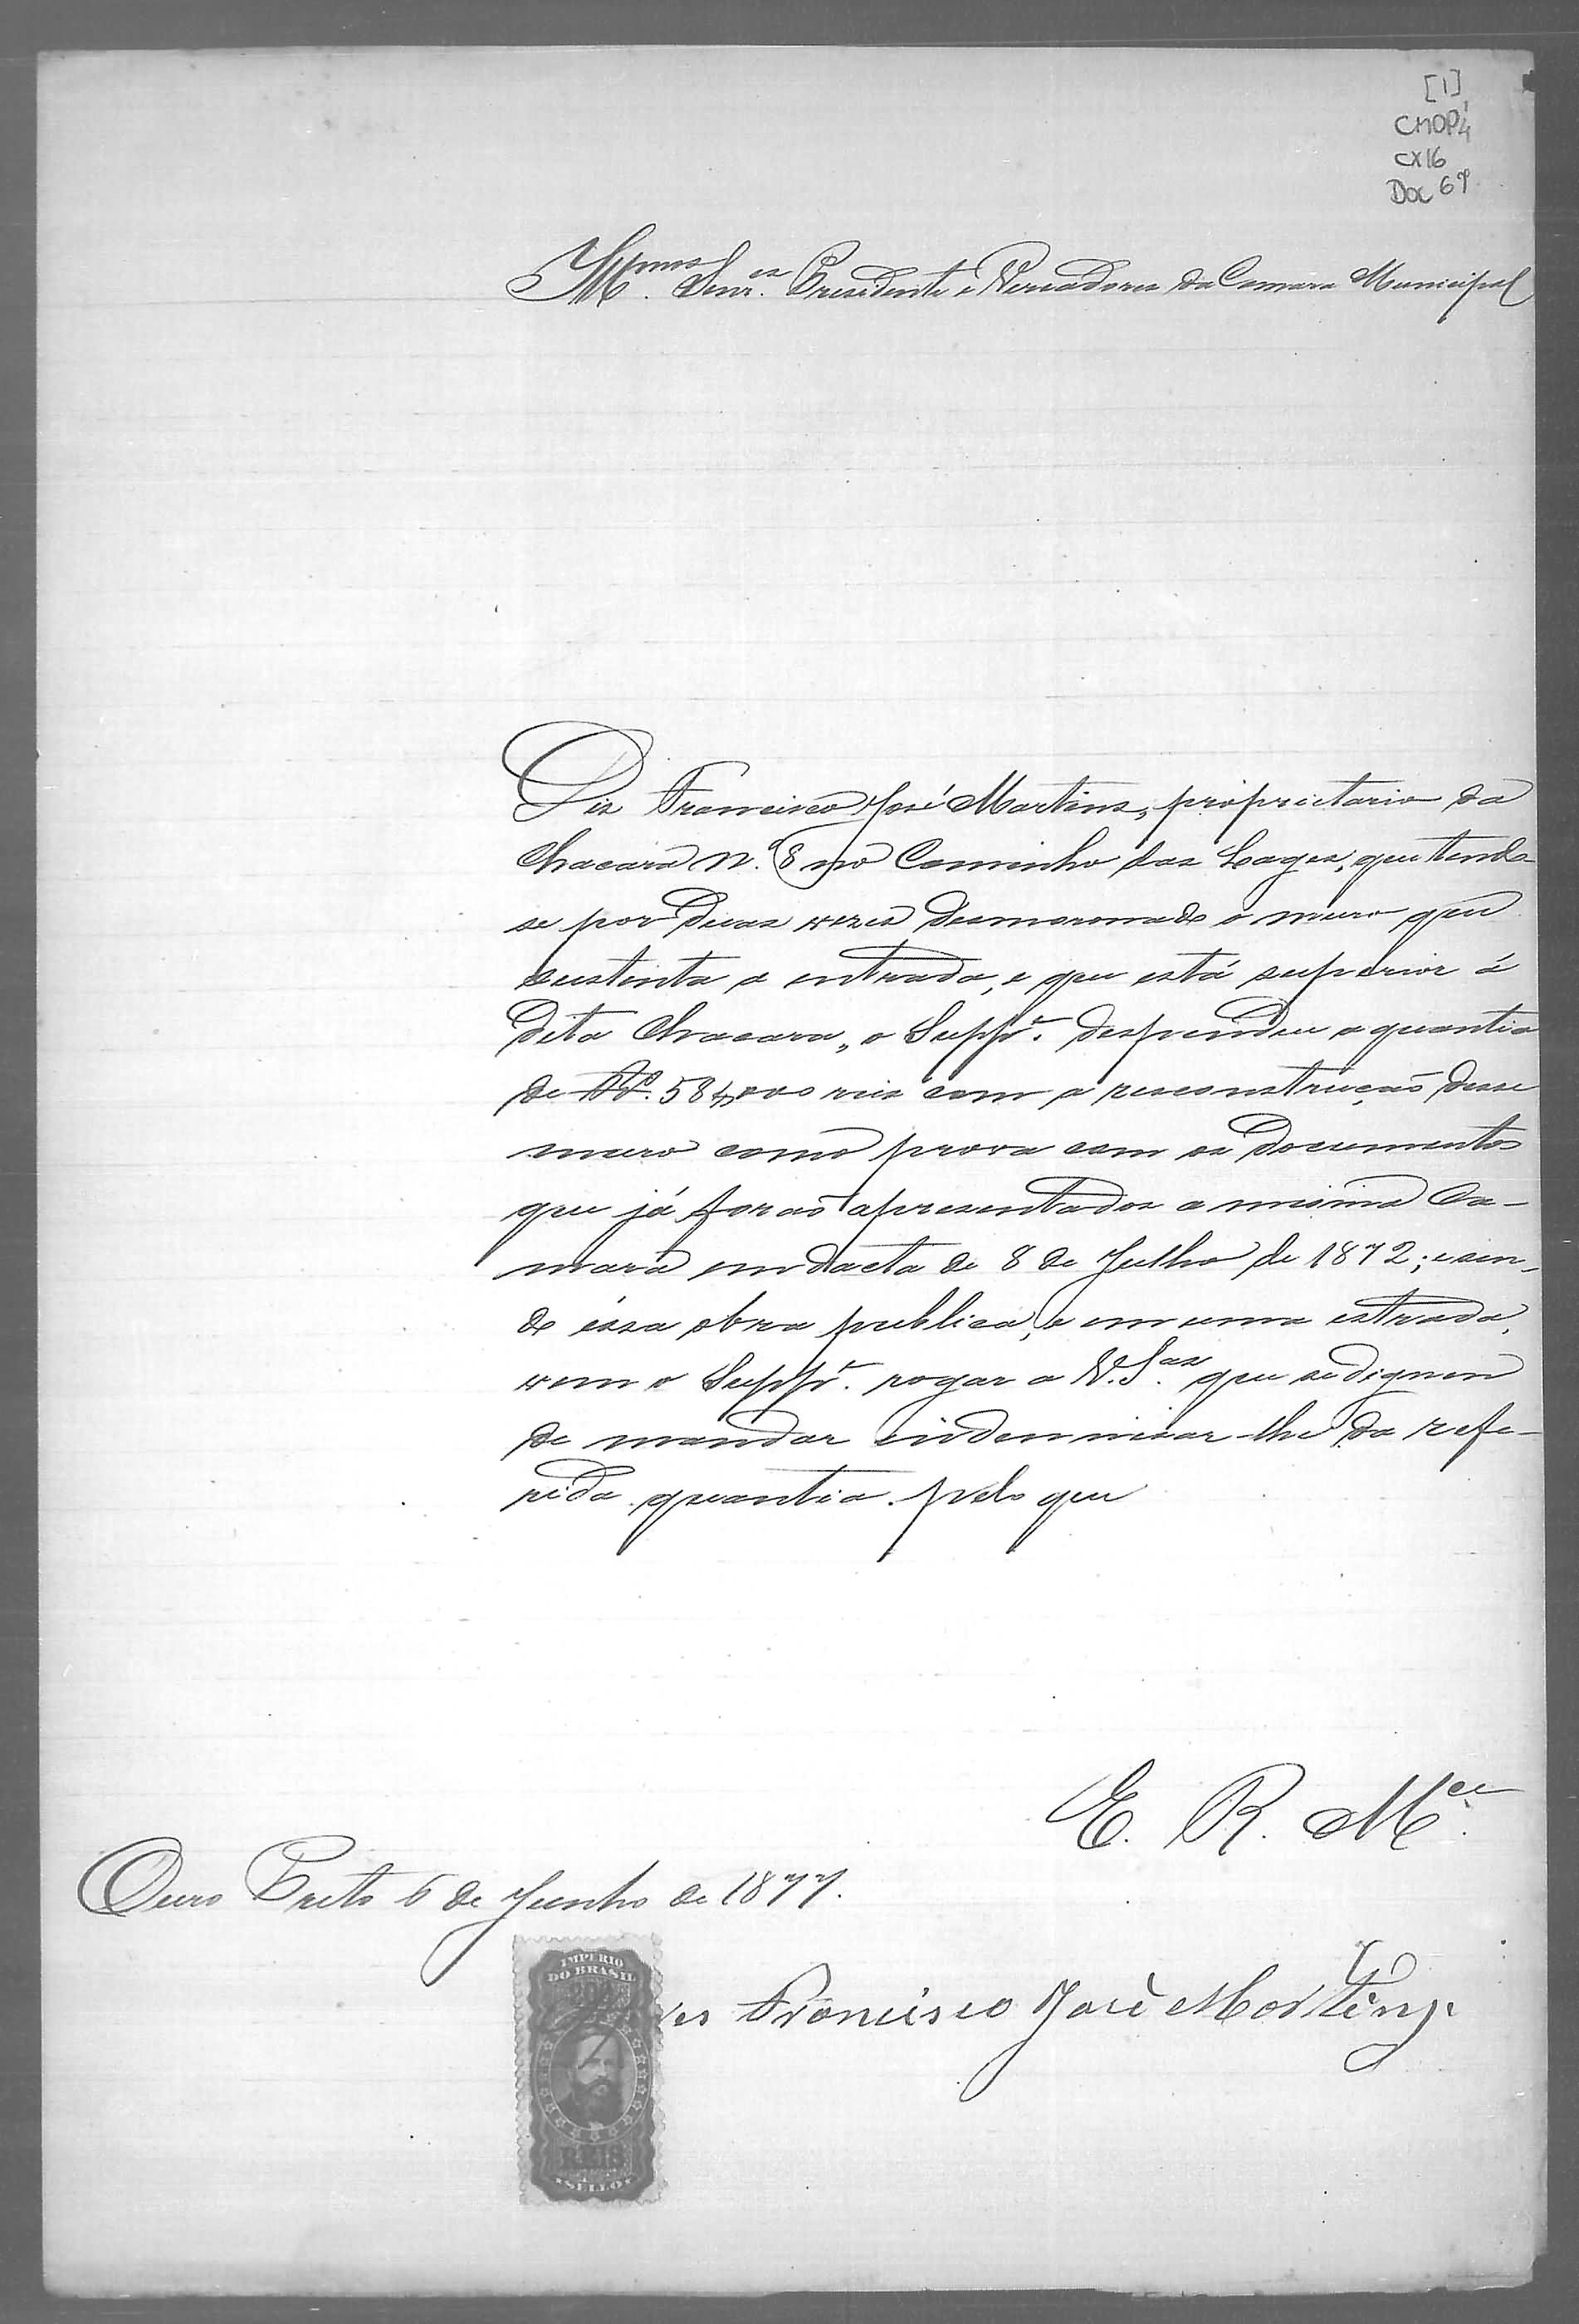 [1]
CMOP 4
CX16
Doc 67
Ill.mos Senr.es Presidente e Vereadores da Camara Municipal
Diz Francisco José Martins, proprietario da
Chacara N.º 8 no Caminho das Lages, que tendo-
se por duas vezes desmoronado o muro que
sustenta a entrada, e que está superior á
dita Chacara, o Supp.e despendeu a quantia
de 584,000 reis com a reconstrução desse
muro como prova com os documentos
que já forão apresentados a mesma Ca-
mara em dacta de 8 de Julho de 1872; e sen-
do essa obra publica, e em uma estrada,
vem o Supp.e rogar a V.S.as que se dignem
de mandar indemnisar-lhe da refe-
rida quantia. pelo que
E. R. M.ce
Ouro Preto 6 de Junho de 1877.
IMPERIO
DO BRASIL
200
Francisco José Martins
REIS
SELLO